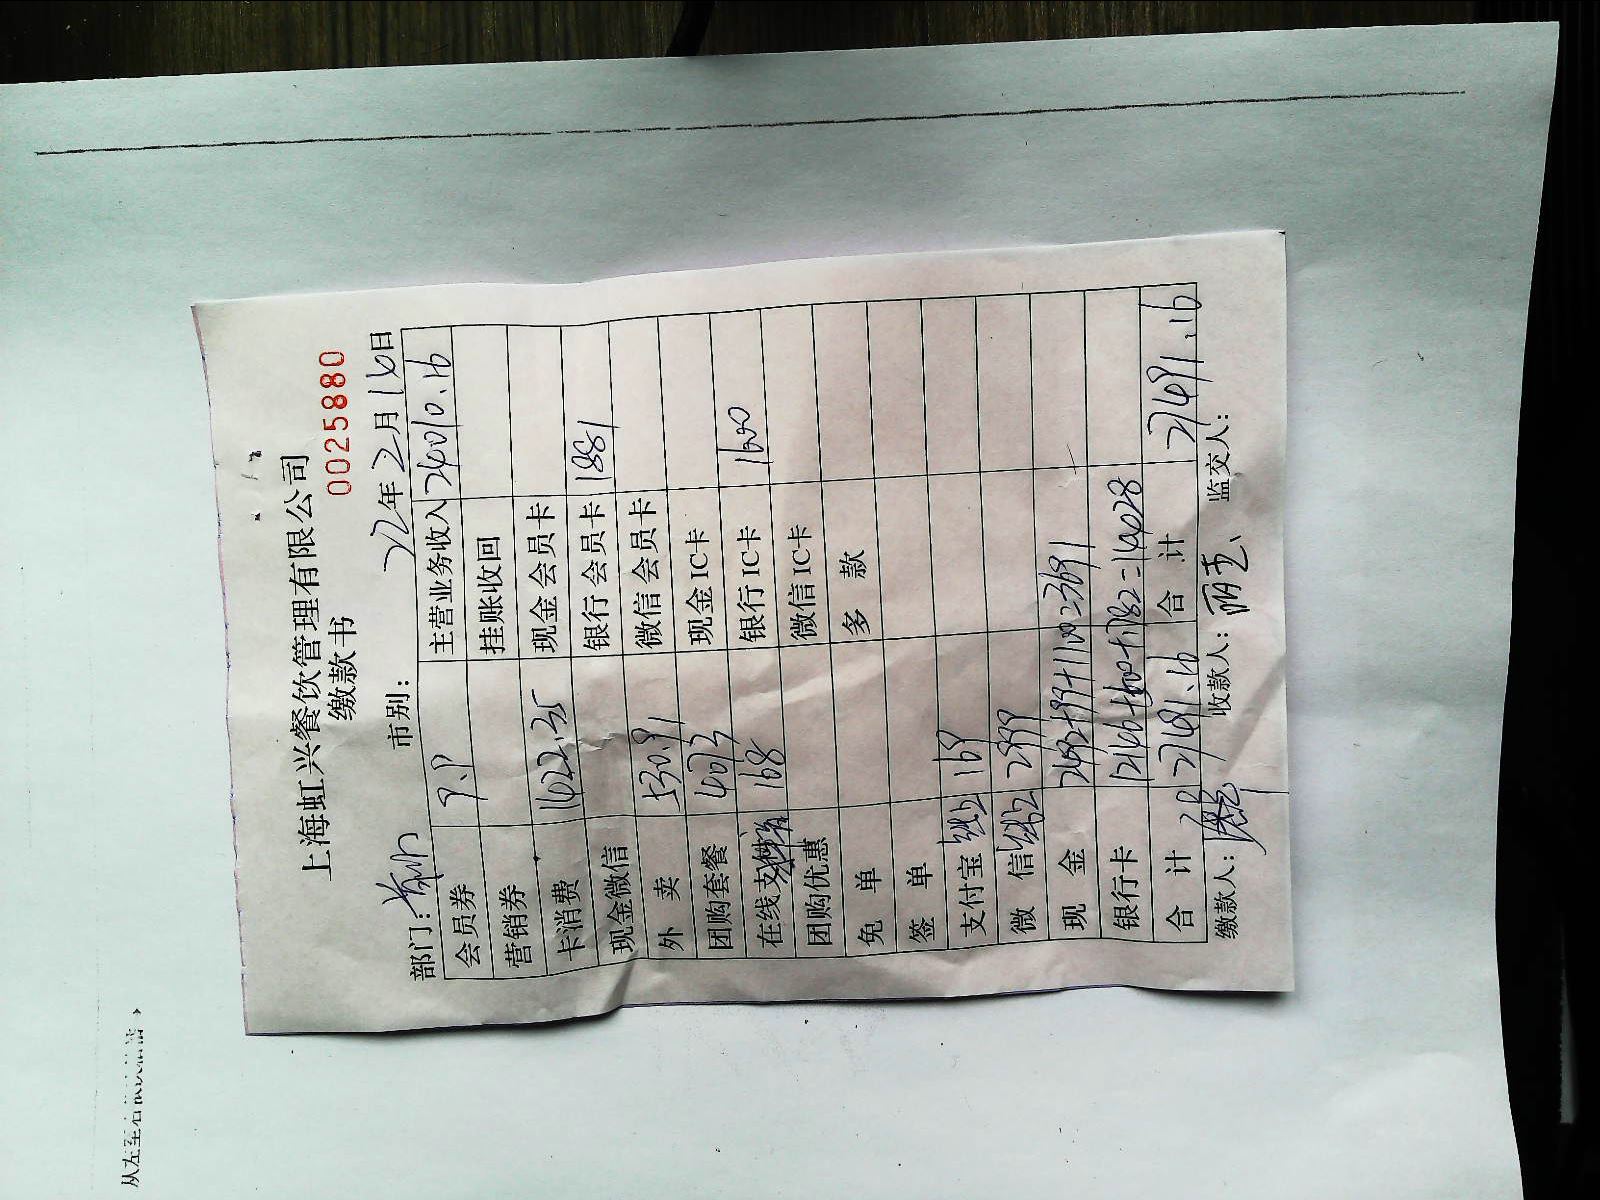 上海虹兴餐饮管理有限公司
缴款书 0025880
部门: 市别: 22年2月16日
会员券 9.9 主营业务收入 24010.16
营销券 挂账收回
卡消费 现金会员卡
现金微信 银行会员卡 1881
外卖 530.91 微信会员卡
团购套餐 4073 现金IC卡
在线 168 银行IC卡 1600
团购优惠 微信IC卡
免单 多款
签单
支付宝 169
微信 2999
现金 2492+99+1100=3691
银行卡 =14028
合计 27491.16 合计 27491.16
缴款人: 收款人: 监交人:
从左至右